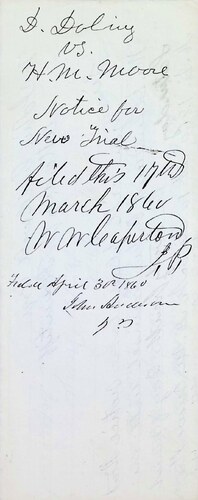 D. Doling
vs.
H. M. Moore
Notice for
New Trial
filed this 17th
March 1860
W W Leaperton
J. P.
April 30th 1860
John Anderson